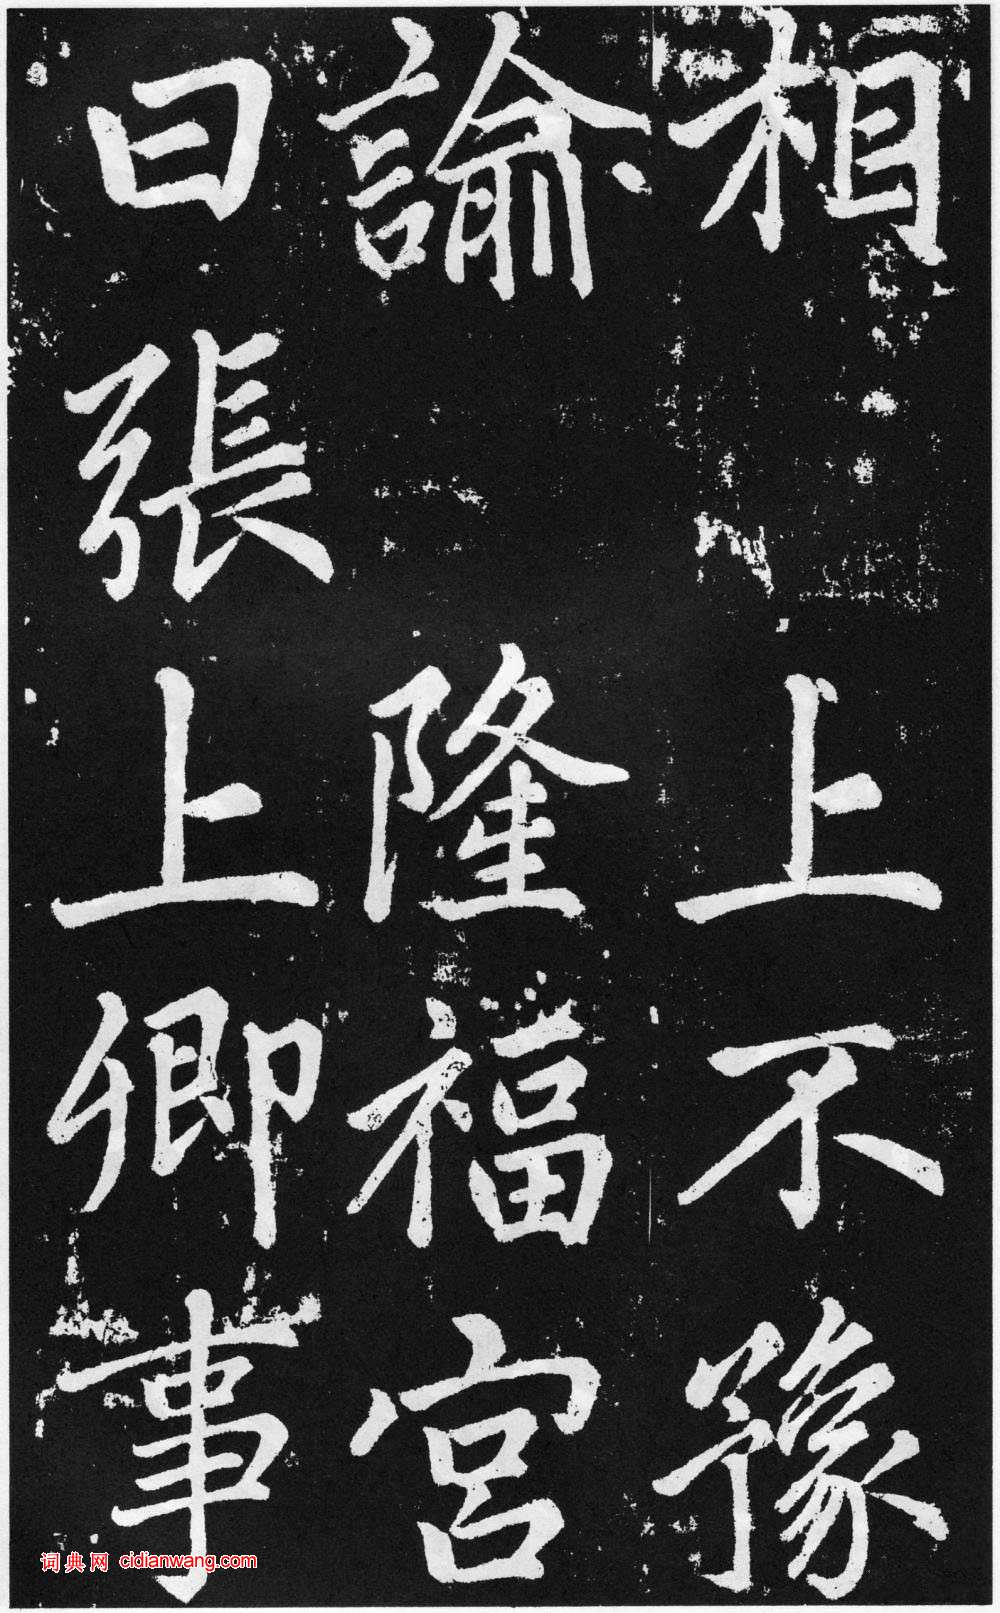 相 上不豫
諭 隆福宮
曰張上卿事
词典网 cidianwang.com